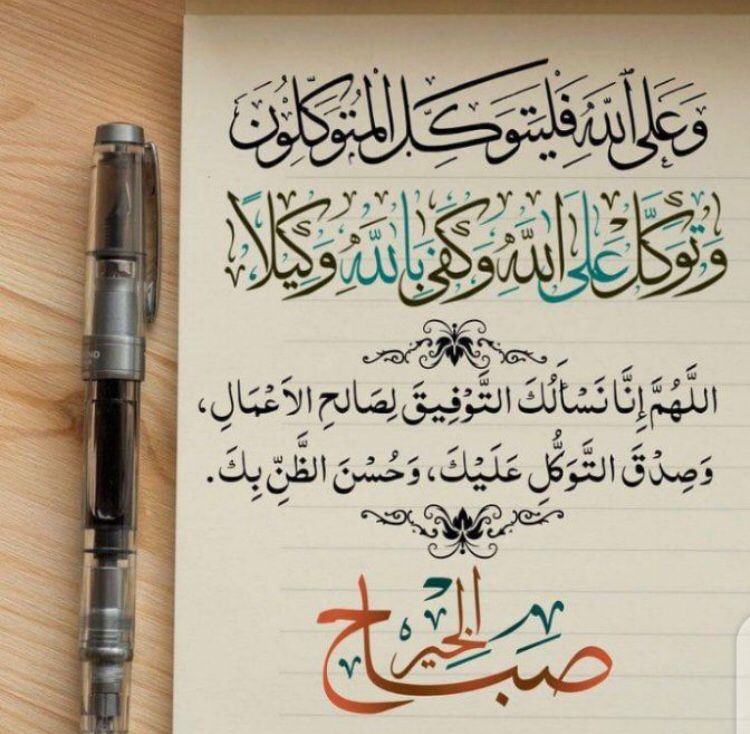 وَعَلَى اللَّهِ فَلْيَتَوَكَّلِ الْمُتَوَكِّلُونَ
وَتَوَكَّلْ عَلَى اللَّهِ وَكَفَىٰ بِاللَّهِ وَكِيلًا
اللَّهُمَّ إِنَّا نَسْأَلُكَ التَّوْفِيقَ لِصَالِحِ الأَعْمَالِ،
وَصِدْقَ التَّوَكُّلِ عَلَيْكَ، وَحُسْنَ الظَّنِّ بِكَ.
صباح الخير